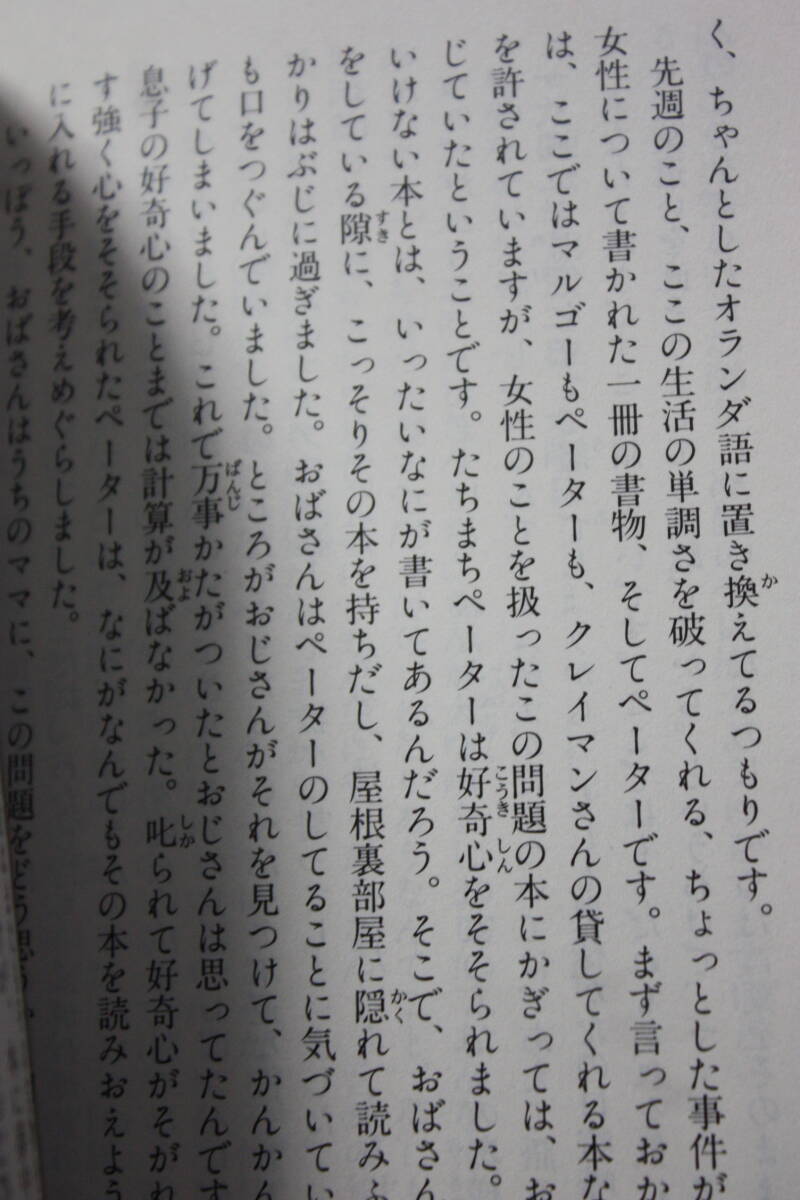 く、ちゃんとしたオランダ語に置き換えてるつもりです。
先週のこと、ここの生活の単調さを破ってくれる、ちょっとした事件が
女性について書かれた一冊の書物、そしてペーターです。まず言っておか
は、ここではマルゴーもペーターも、クレイマンさんの貸してくれる本な
を許されていますが、女性のことを扱ったこの問題の本にかぎっては、お
じていたということです。たちまちペーターは好奇心をそそられました。
いけない本とは、いったいなにが書いてあるんだろう。そこで、おばさん
をしている隙に、こっそりその本を持ちだし、屋根裏部屋に隠れて読みふ
かりはぶじに過ぎました。おばさんはペーターのしてることに気づいてい
も口をつぐんでいました。ところがおじさんがそれを見つけて、かんかん
げてしまいました。これで万事かたがついたとおじさんは思ってたんです
息子の好奇心のことまでは計算が及ばなかった。叱られて好奇心がそがれ
す強く心をそそられたペーターは、なにがなんでもその本を読みおえよう
に入れる手段を考えめぐらしました。
いっぽう、おばさんはうちのママに、この問題をどう思う